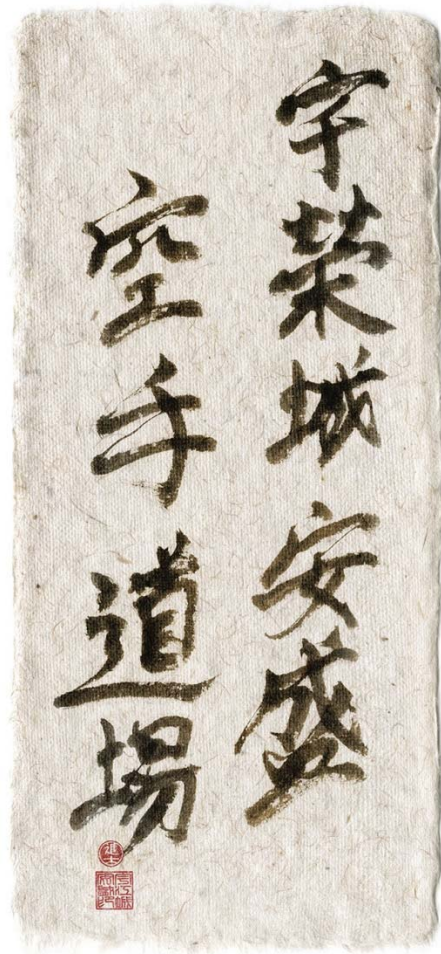 宇榮城安盛
空手道場